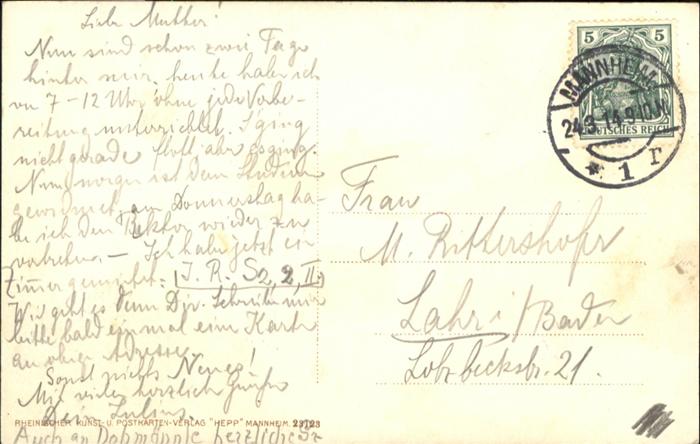 Liebe Mutter!
Nun sind schon zwei Tage
hinter mir. heute habe ich
von 7-12 Uhr ohne jede Vorbe-
reitung unterrichtet. S'ging
nicht gerade flott aber es ging.
Nun morgen ist dem Studium
gewidmet, am Donnerstag ha-
be ich den Rektor wieder zu
vertreten. — Ich habe jetzt ein
Zimmer gemietet: (J. R. S2, 2, II.)
Wie geht es denn Dir. Schreibe mir
bitte bald einmal eine Karte
an obige Adresse.
Sonst nichts Neues!
Mit vielen herzlichen Grüßen
Dein Julius.
Auch an herzliche
RHEINISCHER KUNST- U. POSTKARTEN-VERLAG "HEPP" MANNHEIM. 23723
5 5
DEUTSCHES REICH
MANNHEIM
24.3.14.9-10.N.
* 1 r
Frau
M. Rittershofer
Lahr i/Baden
Lotzbeckstr. 21.